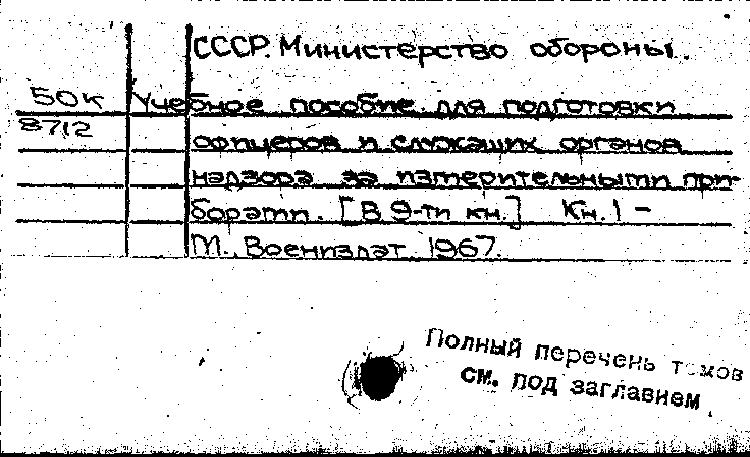 СССР. Министерство обороны.
50к Учебное пособие для подготовки
8712 офицеров и служащих органов
надзора за измерительными при-
борами. [В 9-ти кн.] Кн. 1 -
М., Воениздат, 1967.
Полный перечень томов
см. под заглавием